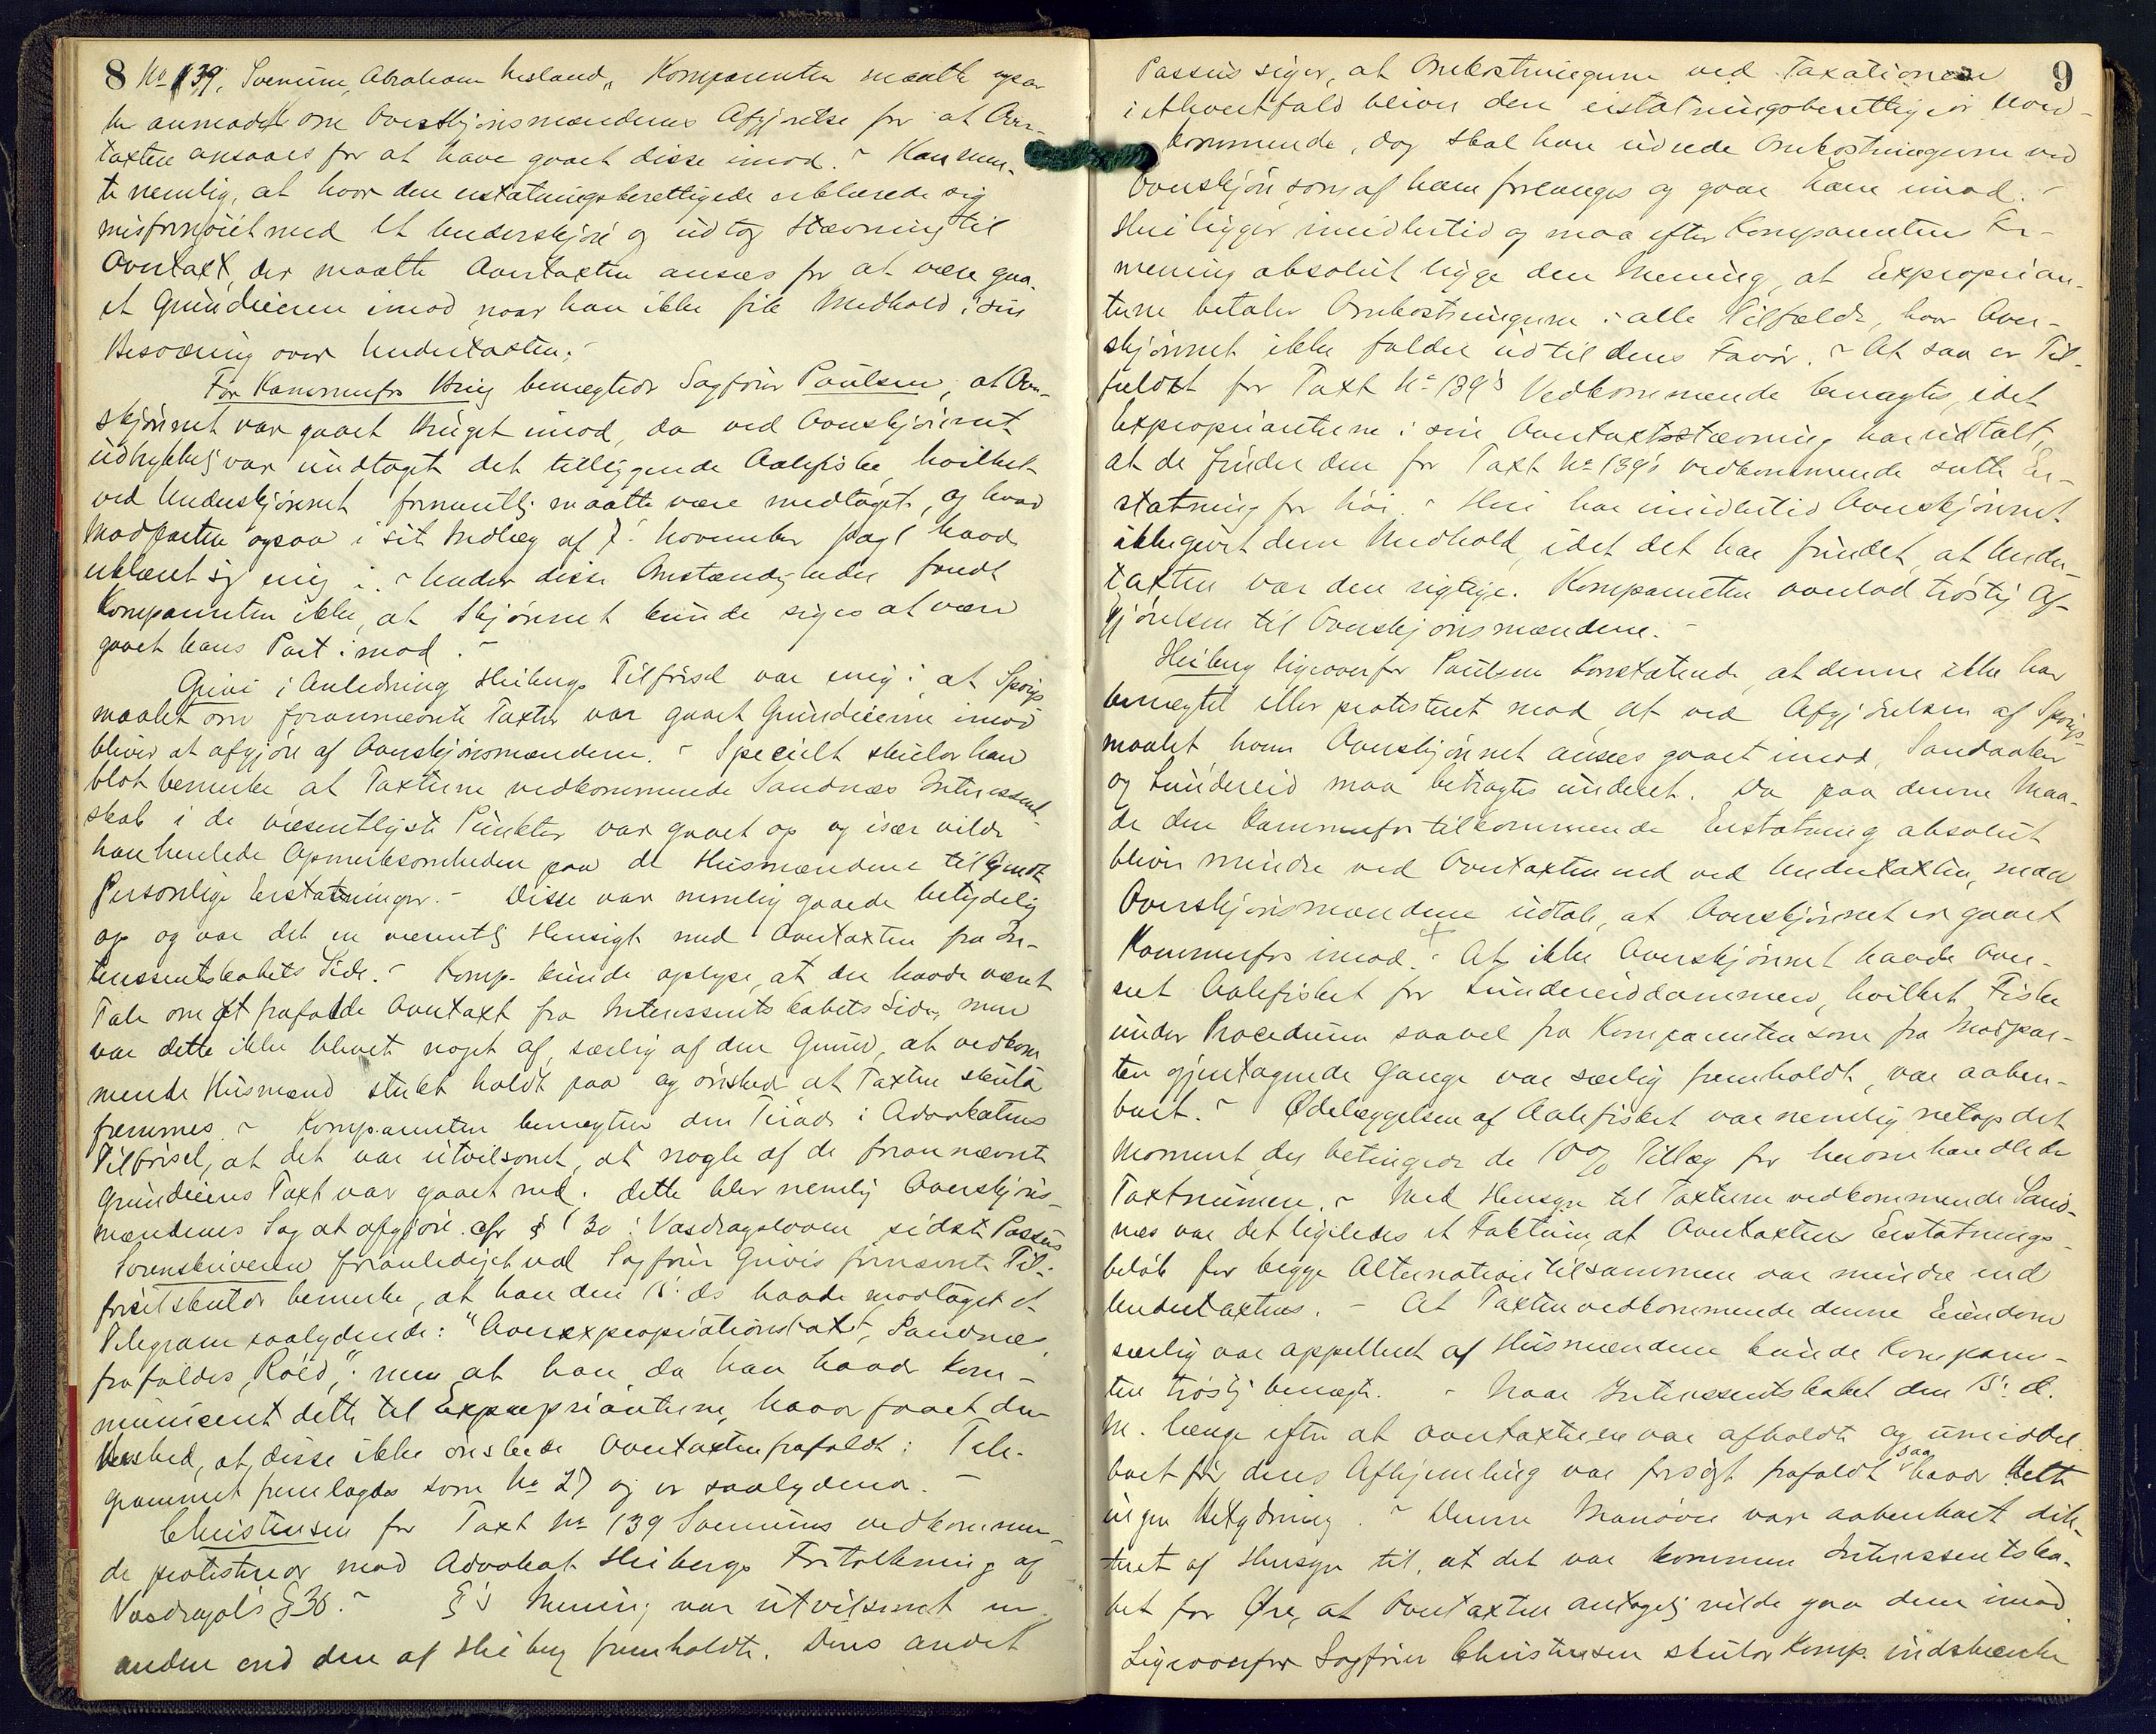 8 No 139, Soennine, Abraham Nesland, Komparenten maatte ogsaa
her anmode om Overskjønsmændenes Afgjørelse for at Over-
taxten ansaaes for at have gaaet disse imod. - Han men-
te nemlig, at hvor den erstatningsberettigede erklærede sig
misfornøiet med et Underskjøn og udtog Stævning til
Overtaxt, der maatte Overtaxten ansees for at være gaa-
et Grundeieren imod naar han ikke fik Medhold i sin
Besværing over Undertaxten.-
For Kammerfr. Krieg benægtede Sagfører Paulsen, at Over-
skjønnet var gaaet Kriget imod, da ved Overskjønnet
udtrykkelig var undtaget det tilliggende Aalefiske, hvilket
ved Underskjønnet formentlig maatte være medtaget, og hvad
Modparten ogsaa i sit Indlæg af 7. November pag 1 havde
erklæret sig enig i. - Under disse Omstændigheder fandt
Komparenten ikke, at Skjønnet kunde siges at være
gaaet hans Part imod. -
Grivi i Anledning Heibergs Tilførsel var enig i, at Spørgs-
maalet om forannævnte Taxter var gaaet Grundeierne imod
bliver at afgjøre af Overskjønsmændene. - Specielt skulde han
blot bemerke at Taxterne vedkommende Sandnæs Interessent-
skab i de væsentligste Punkter var gaaet op og især vilde
han henlede Opmerksomheden paa de Husmændene tilkjendte
Personlige Erstatninger. - Disse var nemlig gaaede betydelig
op og var det en væsentlig Hensigt med Overtaxten fra In-
teressentskabets Side. - Komp. kunde oplyse, at der havde været
Tale om at frafalde Overtaxt fra Interessentskabets Side, men
var dette ikke blevet noget af, særlig af den Grund, at vedkom
mende Husmænd sterkt holdt paa og ønskede at Taxten skulde
fremmes. - Komparenten benægter den Tirade i Advokatens
Tilførsel, at det var utvilsomt, at nogle af de forannævnte
Grundeieres Taxt var gaaet ned. Dette blev nemlig Overskjøns-
mændenes Sag at afgjøre. cfr § 30 i Vasdragsloven sidste Passus
Sorenskriveren foranlediget ved Sagfører Grivis fornævnte Til-
førsel skulde bemerke, at han den 15. ds havde modtaget et
Telegram saalydende: "Overexpropriationstaxt, Sandnæs
frafaldes, Røed," men at han, da han havde kom-
municeret dette til Expropriantene, havde faaet den
Besked, at disse ikke ønskede Overtaxten frafaldt: Tele-
grammet fremlagdes som No 27 og er saalydende. -
Christensen for Taxt No 139 Soennins vedkommen-
de protesterede mod Advokat Heibergs Fortolkning af
Vasdragsl's § 30. - §'s Mening var utvilsomt en
anden end den af Heiberg fremholdte. Dens andet
9
Passus siger, at Omkostningerne ved Taxationen
i ethvertfald bliver den erstatningsberettigede uved-
kommende, dog skal han udrede Omkostningerne ved
Overskjøn, som af ham forlanges og gaar ham imod. -
Heri ligger imidlertid og maa efter Komparentens For-
mening absolut ligge den Mening, at Exproprian-
terne betaler Omkostningerne i alle Tilfælde, hvor Over-
skjønnet ikke falder ud til dens Favør. - At saa er Til-
fældet for Taxt No 139's Vedkommende benægtes, idet
Expropriantene i sin Overtaxtstævning har udtalt,
at de finder den for Taxt No 139's vedkommende satte Er-
statning for høi. - Heri har imidlertid Overskjønnet
ikke givet dem Medhold, idet det har fundet, at Under-
taxten var den rigtige. Komparenten overlod trøstig Af-
gjørelsen til Overskjønsmændene. -
Heiberg ligeoverfor Paulsen konstaterede, at denne ikke har
benægtet eller protesteret mod at ved Afgjørelsen af Spørgs-
maalet, hvem Overskjønnet ansees gaaet imod, Sandaaker
og Lundereid maa betragtes underet. Da paa denne Maa-
de den Kammerfr tilkommende Erstatning absolut
bliver mindre ved Overtaxten end ved Undertaxten, maa
Overskjønsmændene udtale, at Overskjønnet er gaaet
Kammerfrs imod. - At ikke Overskjønnet havde over-
set Aalefisket for Lundereiddammen, hvilket Fiske
under Proceduren saavel fra Komparenten som fra Modpar-
ten gjentagende Gange var særlig fremholdt, var aaben-
bart. - Ødelæggelsen af Aalefisket var nemlig netop det
Moment, der betingede de 10% Tillæg for heromhandlede
Taxtnummer. - Med Hensyn til Taxterne vedkommende Sand-
næs var det ligeledes et Faktum, at Overtaxtens Erstatnings-
beløb for begge Alternativer tilsammen var mindre end
Undertaxtens. - At Taxten vedkommende denne Eiendom
særlig var appelleret af Husmændene kunde Komparen-
ten trøstig benægte. - Naar Interessentskabet den 15. d.
M. længe efter at overtaxterne var afholdt og umiddel-
bart før dens Afhjemling var forsøgt frafaldt saa havde dette
ingen Betydning. - Denne Manøvre var aabenbart dik-
teret af Hensyn til, at det var kommen Interessentska-
bet for Øre, at Overtaxten antagelig vilde gaa dem imod.
Ligeoverfor Sagfører Christensen skulde Komp. indskrænke